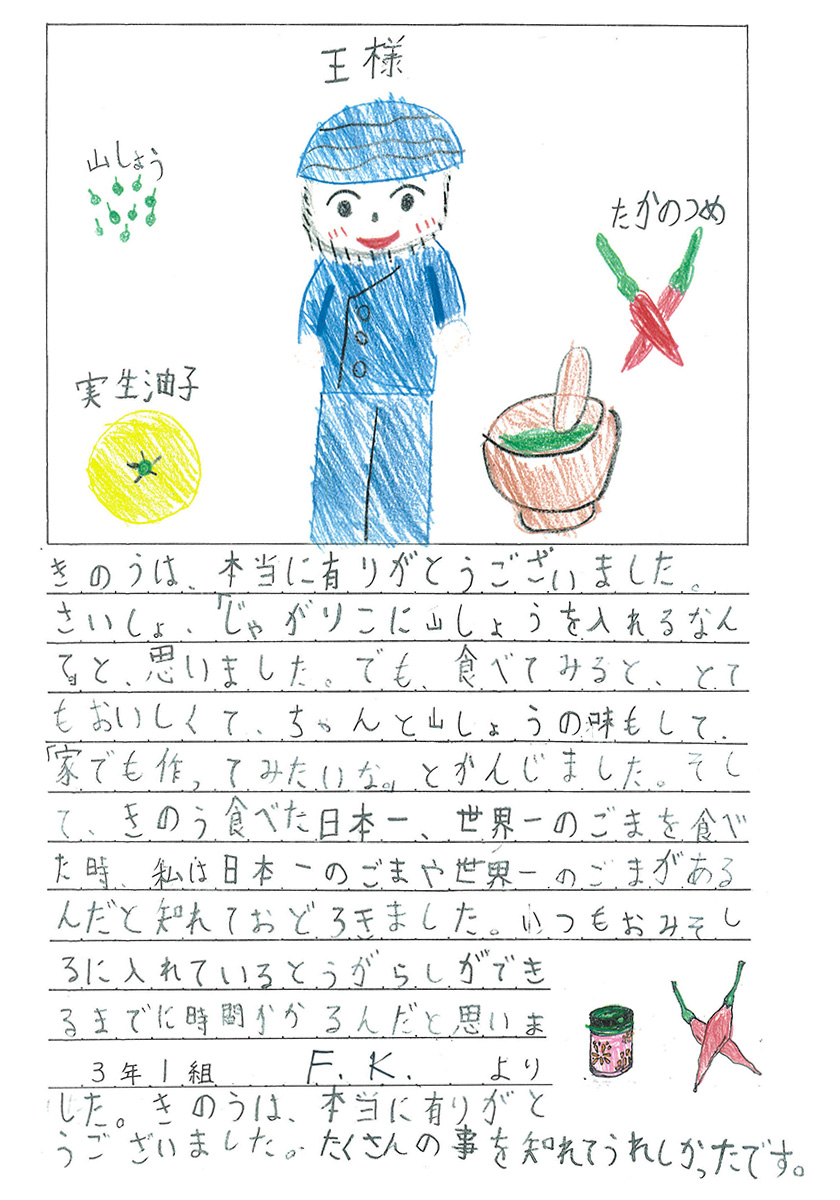 王様
山しょう
たかのつめ
実生油子
きのうは、本当に有りがとうございました。
さいしょ、「じゃがりこに山しょうを入れるなん
て」と、思いました。でも、食べてみると、とて
もおいしくて、ちゃんと山しょうの味もして、
「家でも作ってみたいな。」とかんじました。そし
て、きのう食べた日本一、世界一のごまを食べ
た時、私は日本一のごまや世界一のごまがある
んだと知れておどろきました。いつもおみそし
るに入れているとうがらしができ
るまでに時間かかるんだと思いま
3年1組 F.K. より
した。きのうは、本当に有りがと
うございました。たくさんの事を知れてうれしかったです。